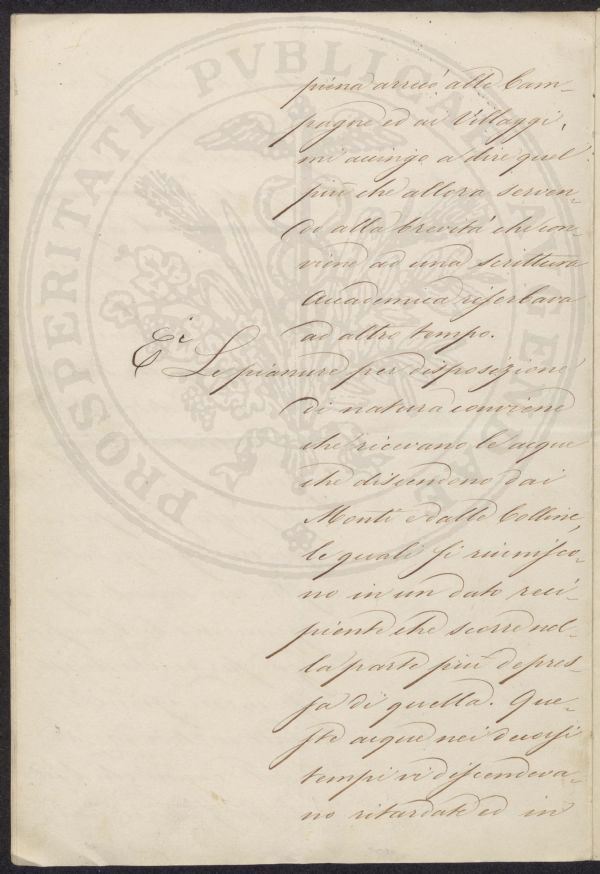 PROSPERITATI PVBLICAE AVGENDAE
piena arrecò alle Cam-
pagne ed ai Villaggi,
mi accingo a dire quel
più che allora serven-
do alla brevità che con-
viene ad una scrittura
Accademica riserbava
ad altro tempo.
Ei Le pianure per disposizione
di natura conviene
che ricevano le acque
che discendono dai
Monti e dalle Colline,
le quali si riunisco-
no in un dato reci-
piente che scorre nel-
la parte più depres-
sa di quella. Que-
ste acque nei decorsi
tempi vi discendeva-
no ritardate ed in